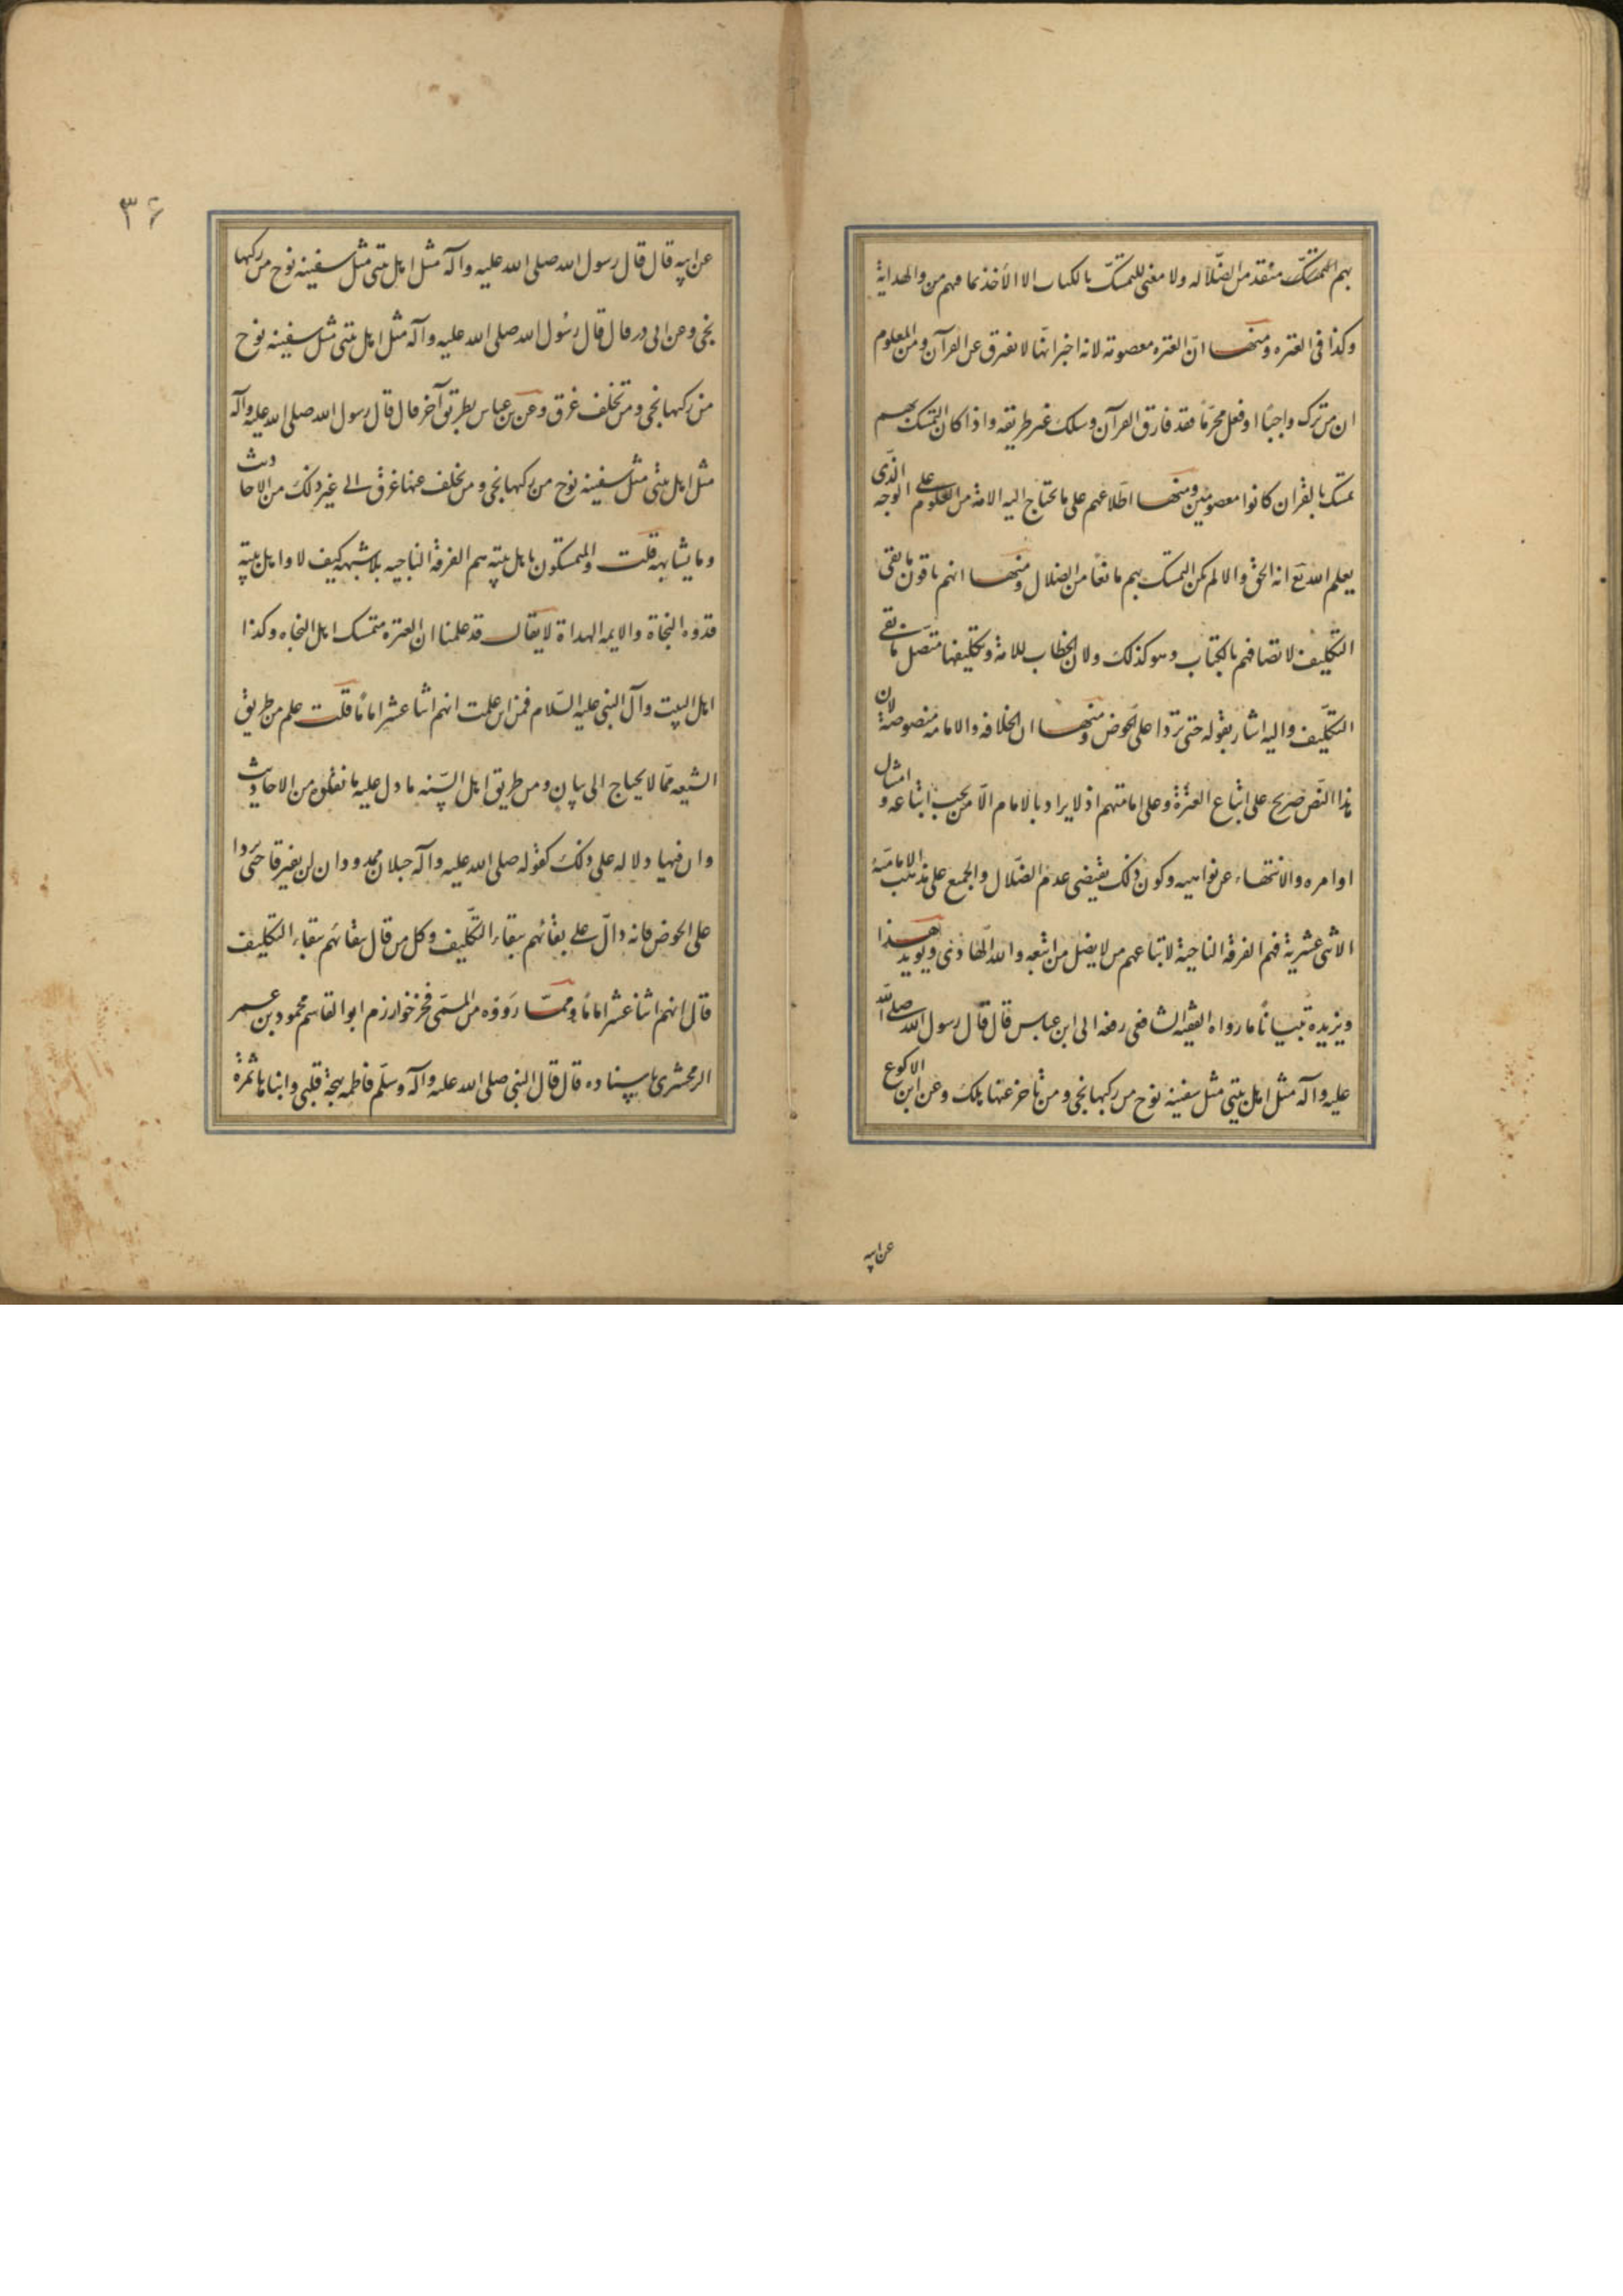 بهم المتمسك منقد من الضلاله ولا معنى للتمسك بالكتاب الا الأخذ بما فهم من والهداية
وكذا فى العتره ومنها انّ العتره معصومة لانه اخبر انها لا تفترق عن القرآن ومن المعلوم
ان من ترك واجبًا او فعل محرّمًا فقد فارق القرآن وسلك غير طريقه واذا كان التمسك بهم
تمسك بالقران كانوا معصومين ومنها اطّلاعهم على ما تحتاج اليه الامة من العلوم على الوجه الذى
يعلم الله تع انه الحق والا لم يكن التمسك بهم مانعًا من الضلال ومنها انهم باقون ما بقى
التكليف لاتصافهم بالكتاب وهو كذلك ولان الخطاب للامة وتكليفها متصل ما بقى
التكليف واليه اشار بقوله حتى تردا على الحوض ومنها ان الخلافه والامامه منصوصة لان
هذا النص صريح على اتباع العترة وعلى امامتهم اذ لا يراد بالامام الّا من يجب اتباعه و امتثال
اوامره والانتهاء عن نواهيه وكون ذلك يقتضى عدم الضلال والجمع على مذهب الامامية
الاثنى عشرية فهم الفرقة الناجية لاتباعهم من لا يضل من اتبعه والله الهادى ويويد هذا
ويزيده تبيانًا ما رواه الفقيه الشافعى رفعه الى ابن عباس قال قال رسول الله صلى الله
عليه وآله مثل اهل بيتى مثل سفينه نوح من ركبها نجى ومن تأخر عنها هلك وعن ابن الاكوع
عن ابيه
۳۶
عن ابيه قال قال رسول الله صلى الله عليه وآله مثل اهل بيتى مثل سفينه نوح من ركبها
نجى وعن ابى ذر قال قال رسول الله صلى الله عليه وآله مثل اهل بيتى مثل سفينه نوح
من ركبها نجى ومن تخلف غرق وعن بن عباس بطريق آخر قال قال رسول الله صلى الله عليه وآله
مثل اهل بيتى مثل سفينه نوح من ركبها نجى ومن تخلف عنها غرق الى غير ذلك من الاحاديث
وما يشابهه قلت والمتمسكون باهل بيته هم الفرقة الناجيه بلا شبهه كيف لا واهل بيته
قدوه النجاة والايمه الهداة لا يقال قد علمنا ان العتره متمسك اهل النجاه وكذا
اهل البيت وآل النبى عليه السلام فمن اين علمت انهم اثنا عشر امامًا قلت علم من طريق
الشيعه ممّا لا يحتاج الى بيان ومن طريق اهل السّنه ما دل عليه ما نقلوه من الاحاديث
وان فيها دلاله على ذلك كقوله صلى الله عليه وآله حبلان ممدودان لن يفترقا حتى يردا
على الحوض فانه دالّ على بقائهم ببقاء التكليف وكل من قال ببقائهم ببقاء التكليف
قال انهم اثنا عشر امامًا وممّا رووه من المسمى فخر خوارزم ابو القاسم محمود بن عمر
الزمخشرى باسناده قال قال النبى صلى الله عليه وآله وسلم فاطمه بهجة قلبى وابناها ثمرة